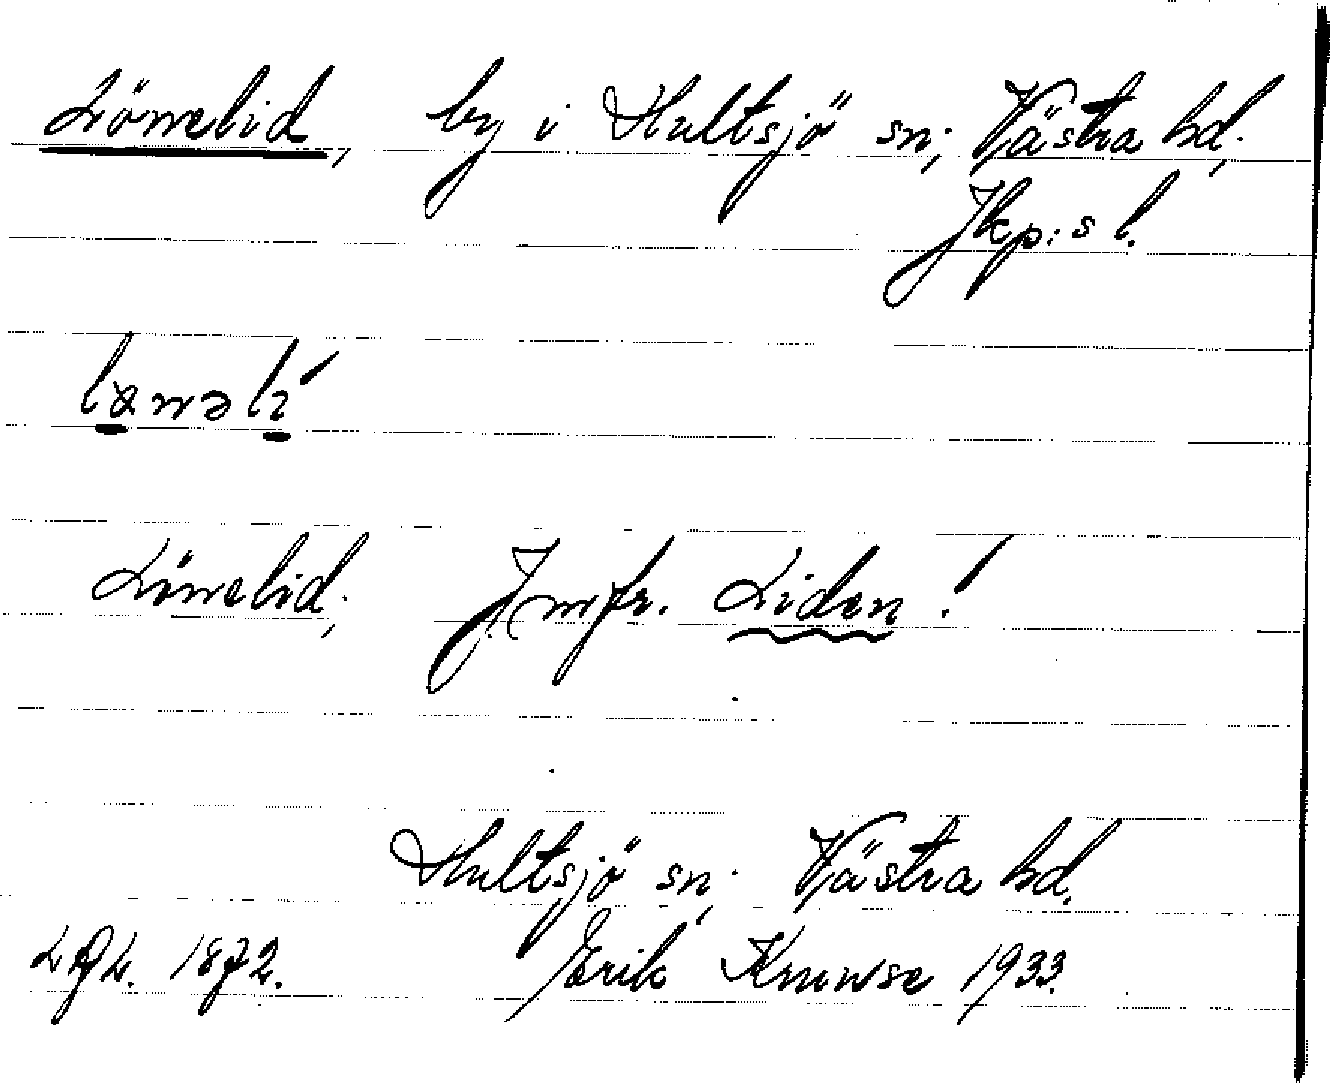 Lönnelid, by i Hultsjö sn; Västra hd;
Jkp:s l.
Lönnelid; Jmfr. Liden!
Hultsjö sn; Västra hd.
1872. Erik Kruuse 1933.